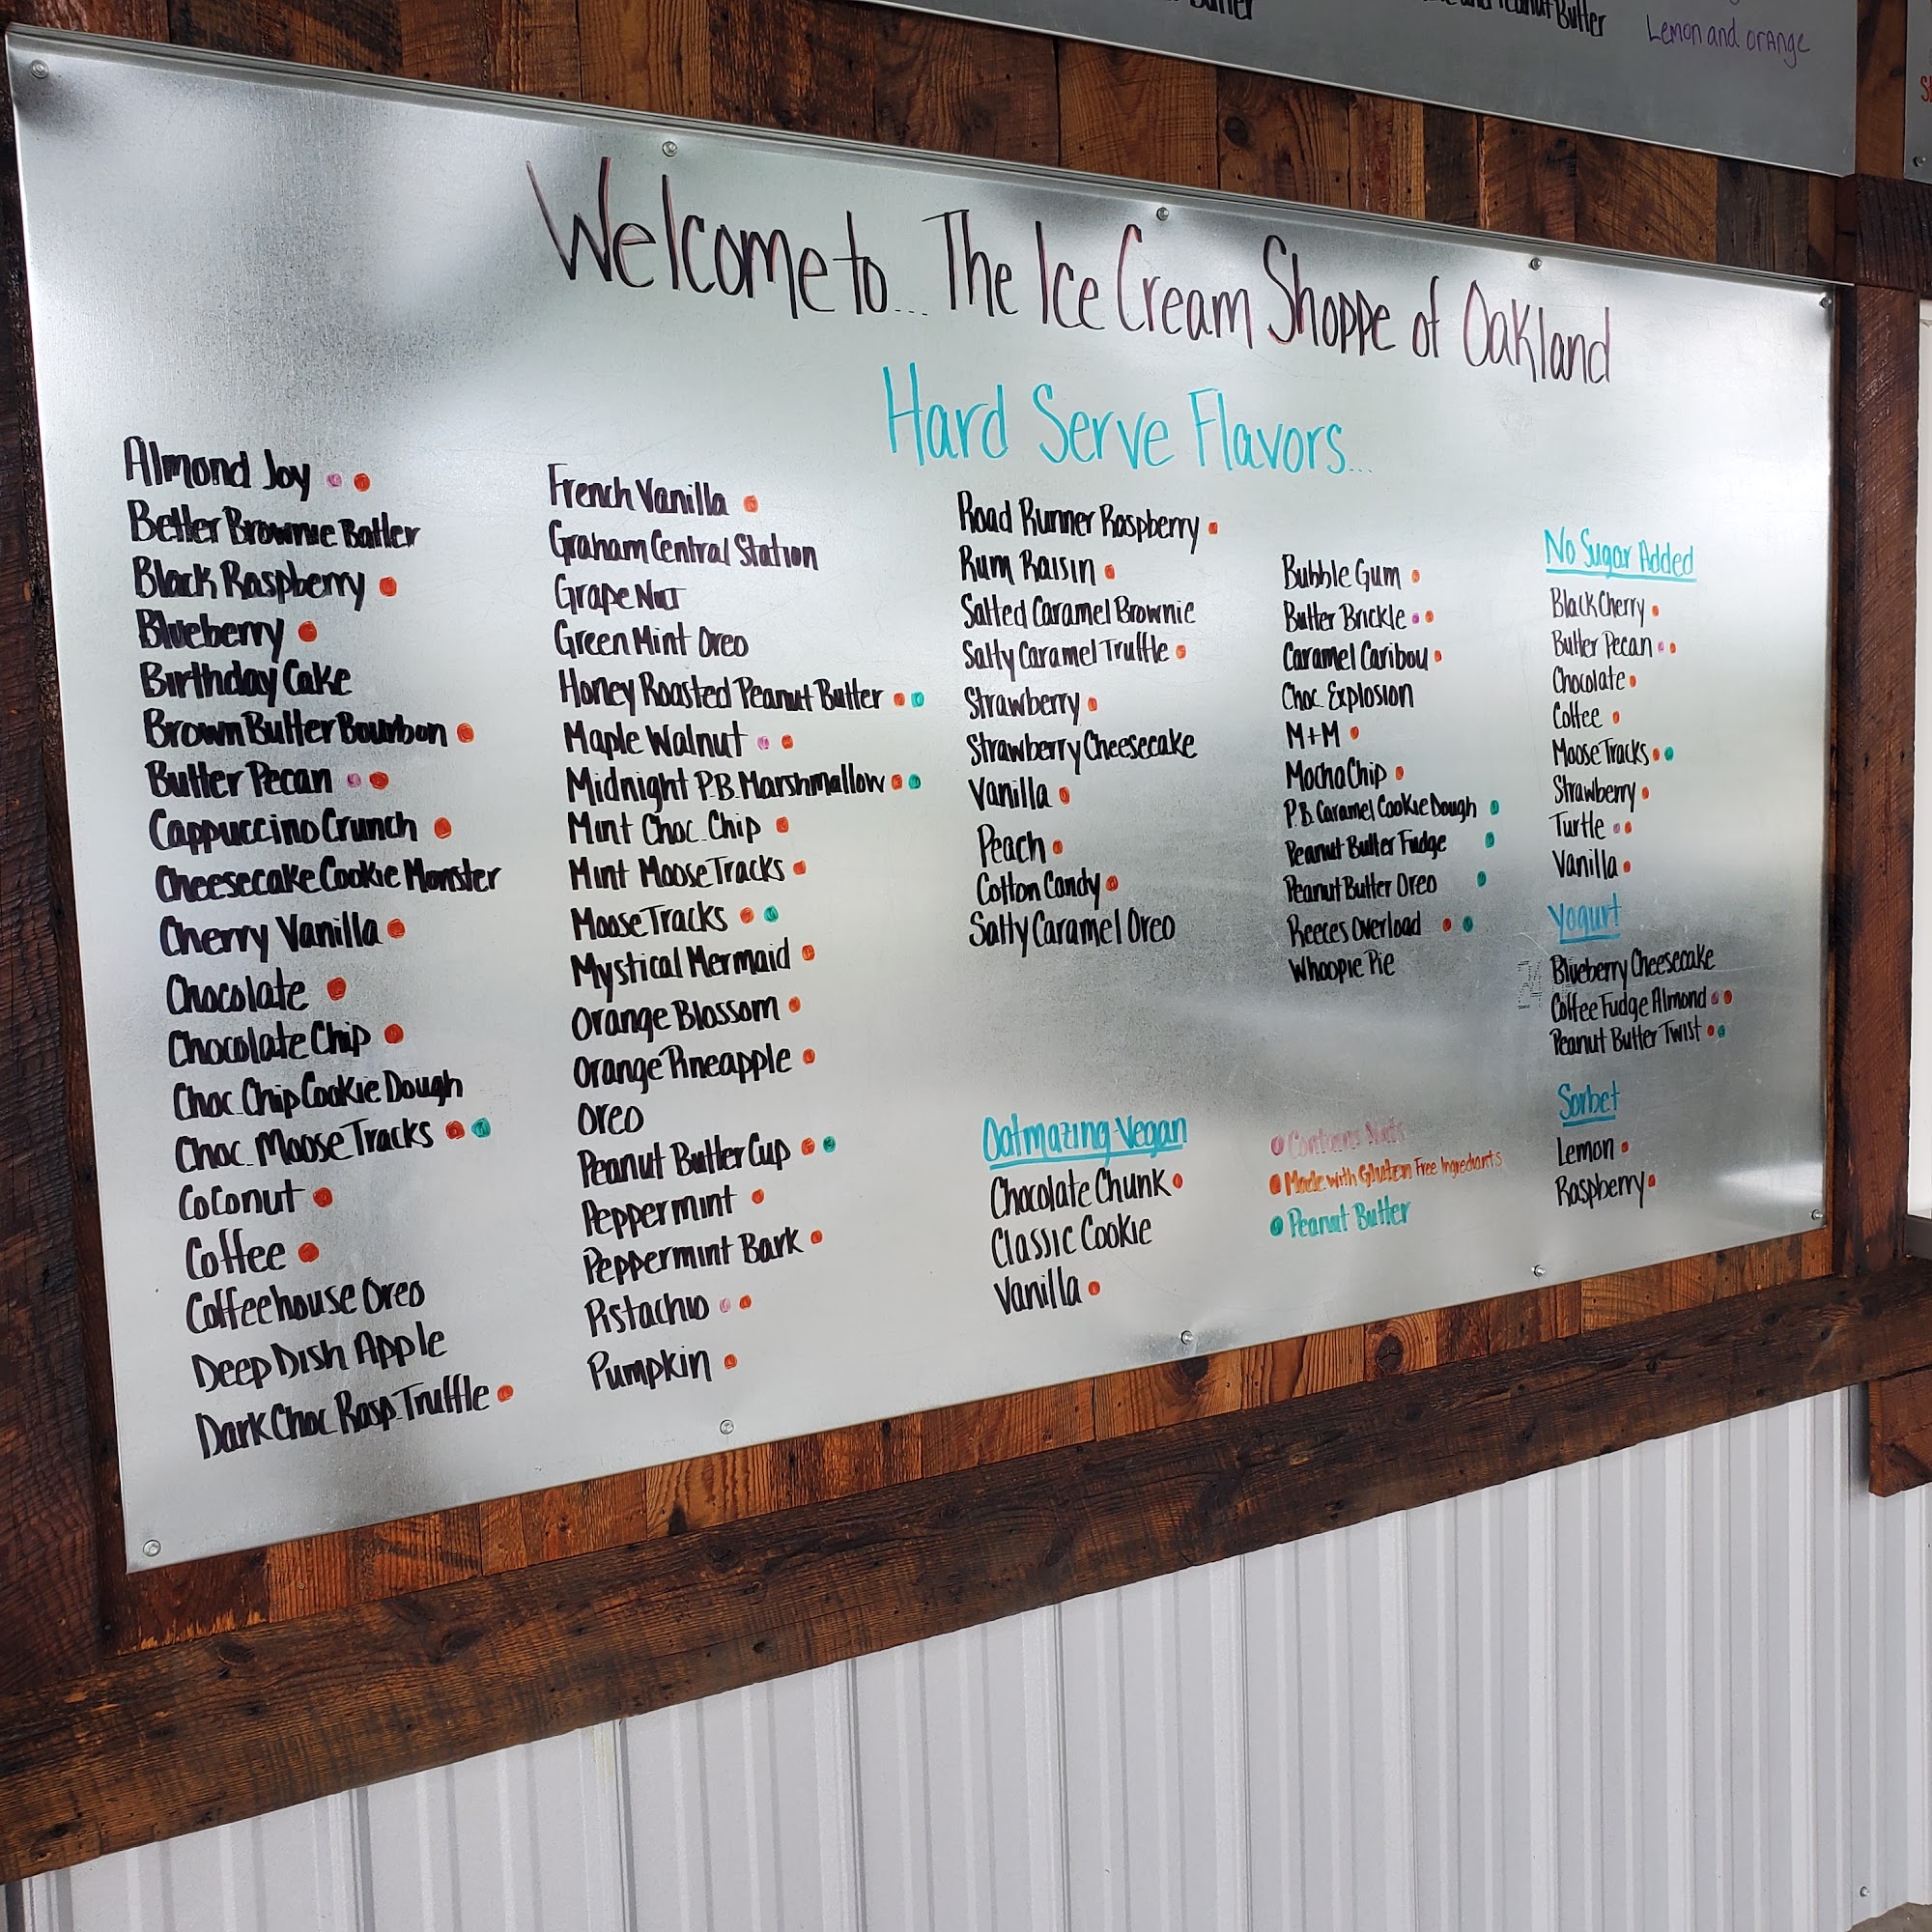 Butter
Peanut Butter
Lemon and orange
Welcome to... The Ice Cream Shoppe of Oakland
Hard Serve Flavors...
Almond Joy
Better Brownie Batter
Black Raspberry
Blueberry
Birthday Cake
Brown Butter Bourbon
Butter Pecan
Cappuccino Crunch
Cheesecake Cookie Monster
Cherry Vanilla
Chocolate
Chocolate Chip
Choc. Chip Cookie Dough
Choc. Moose Tracks
Coconut
Coffee
Coffeehouse Oreo
Deep Dish Apple
Dark Choc Rasp. Truffle
French Vanilla
Graham Central Station
Grape Nut
Green Mint Oreo
Honey Roasted Peanut Butter
Maple Walnut
Midnight P.B. Marshmallow
Mint Choc. Chip
Mint Moose Tracks
Moose Tracks
Mystical Mermaid
Orange Blossom
Orange Pineapple
Oreo
Peanut Butter Cup
Peppermint
Peppermint Bark
Pistachio
Pumpkin
Road Runner Raspberry
Rum Raisin
Salted Caramel Brownie
Salty Caramel Truffle
Strawberry
Strawberry Cheesecake
Vanilla
Peach
Cotton Candy
Salty Caramel Oreo
Oatmazing Vegan
Chocolate Chunk
Classic Cookie
Vanilla
Bubble Gum
Butter Brickle
Caramel Caribou
Choc. Explosion
M+M
Mocha Chip
P.B. Caramel Cookie Dough
Peanut Butter Fudge
Peanut Butter Oreo
Reeces Overload
Whoopie Pie
Contains Nuts
Made with Gluten Free Ingrediants
Peanut Butter
No Sugar Added
Black Cherry
Butter Pecan
Chocolate
Coffee
Moose Tracks
Strawberry
Turtle
Vanilla
Yogurt
Blueberry Cheesecake
Coffee Fudge Almond
Peanut Butter Twist
Sorbet
Lemon
Raspberry